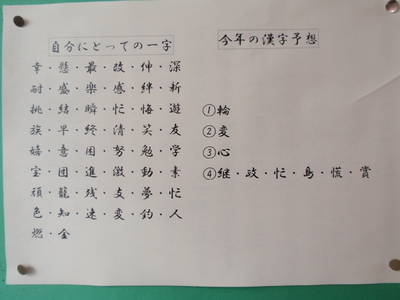 自分にとっての一字
幸・懸・最・改・伸・深
耐・盛・楽・感・絆・新
挑・結・瞬・忙・悔・遊
族・早・終・清・笑・友
嬉・意・困・努・勉・学
宝・団・進・激・動・素
頑・龍・残・支・夢・忙
色・知・速・変・釣・人
燃・金
今年の漢字予想
①輪
②変
③心
④継・政・忙・島・慌・賞